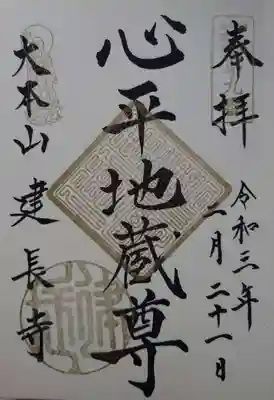 奉拝
令和三年
二月二十一日
心平地蔵尊
大本山 建長寺